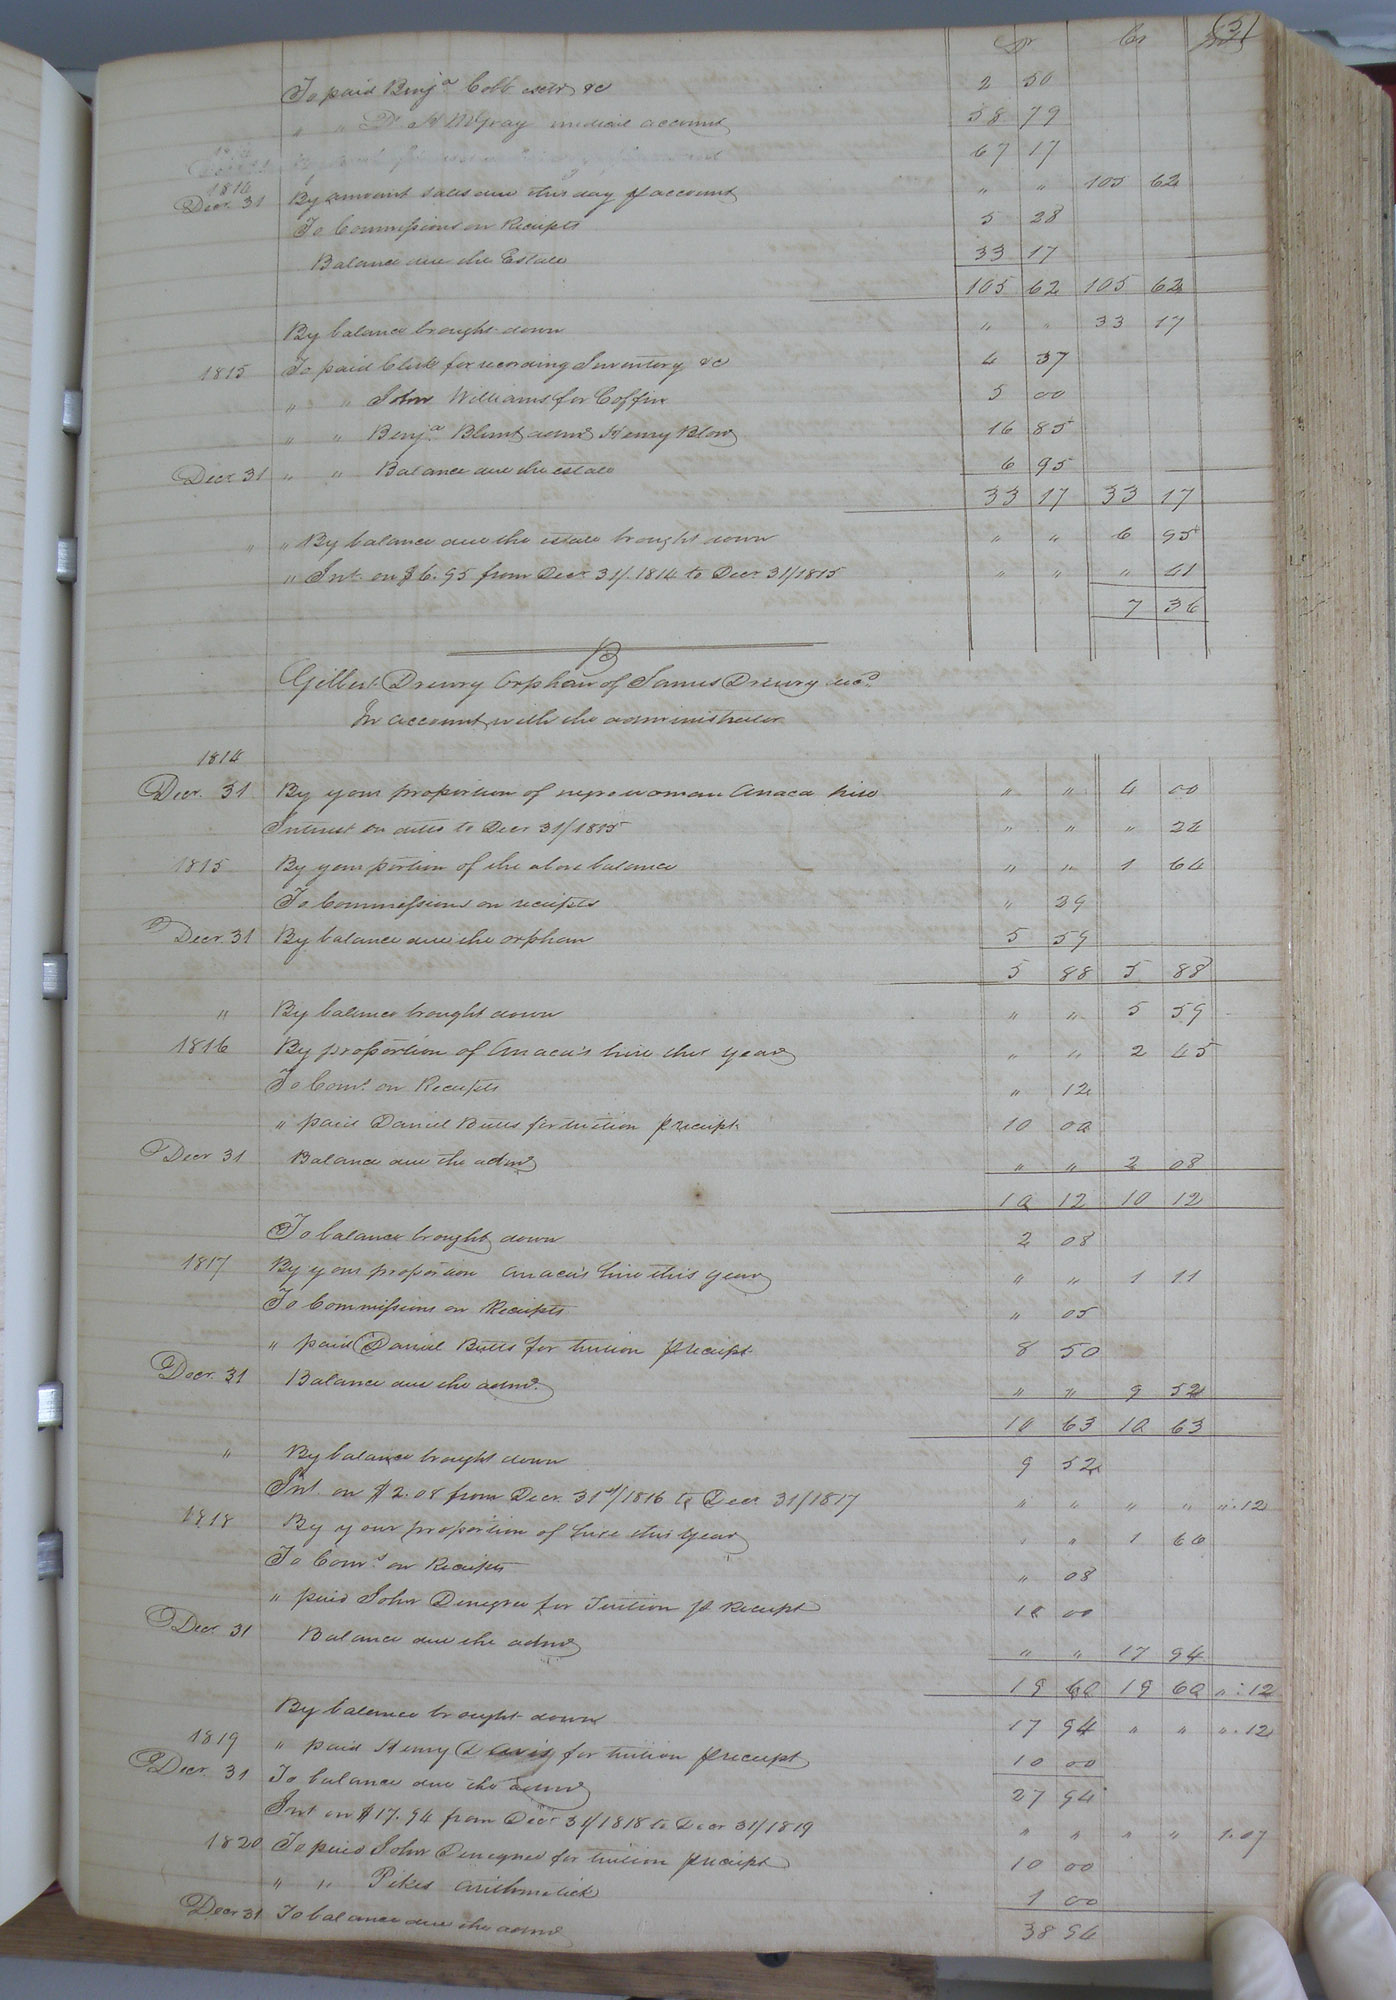 Dr Cr (31
To paid Benja Cobb exetr &c 2 50
" " Dr H McGray medical account 38 79
67 17
1814
Decr 31 By amount sales due this day pr account " " 105 62
To Commissions on Receipts 5 28
Balance due the Estate 33 17
105 62 105 62
By balance brought down " " 33 17
1815 To paid Clerk for recording Inventory &c 4 37
" " John Williams for Coffin 5 00
" " Benja Blunt admr Henry Blow 16 85
Decr 31 " " Balance due the estate 6 95
33 17 33 17
" " By balance due the estate brought down " " 6 95
" Int. on $6.95 from Decr 31/1814 to Decr 31/1815 " " " 41
7 36
B
Gilbert Drewry Orphan of James Drewry decd
In account with the administrator
1814
Decr. 31 By your proportion of negro woman Anaca hire " " 4 00
Interest on ditto to Decr 31/1815 " " " 24
1815 By your portion of the above balance " " 1 64
To Commissions on receipts " 39
Decr. 31 By balance due the orphan 5 59
5 88 5 88
" By balance brought down " " 5 59
1816 By proportion of Anaca's hire this year " " 2 45
To Coms on Receipts " 12
" paid Daniel Butts for tuition pr receipt 10 00
Decr 31 Balance due the admr " " 2 08
10 12 10 12
To balance brought down 2 08
1817 By your proportion Anaca's hire this year " " 1 11
To Commissions on Receipts " 05
" paid Daniel Butts for tuition pr receipt 8 50
Decr. 31 Balance due the admr. " " 9 52
10 63 10 63
" By balance brought down 9 52
Int. on $2.08 from Decr. 31st/1816 to Decr 31/1817 " " " " ".12
1818 By your proportion of hire this year " " 1 66
To Coms on Receipts " 08
" paid John Denegree for Tuition pr Receipt 10 00
Decr 31 Balance due the admr " " 17 94
19 60 19 60 ".12
By balance brought down 17 94 " " ".12
1819 " paid Henry Davis for tuition pr receipt 10 00
Decr. 31 To balance due the admr 27 94
Int on $17.94 from Decr 31/1818 to Decr 31/1819 " " " " 1.07
1820 To paid John Denegree for tuition pr receipt 10 00
" " Pikes arithmetick 1 00
Decr 31 To balance due the admr 38 94